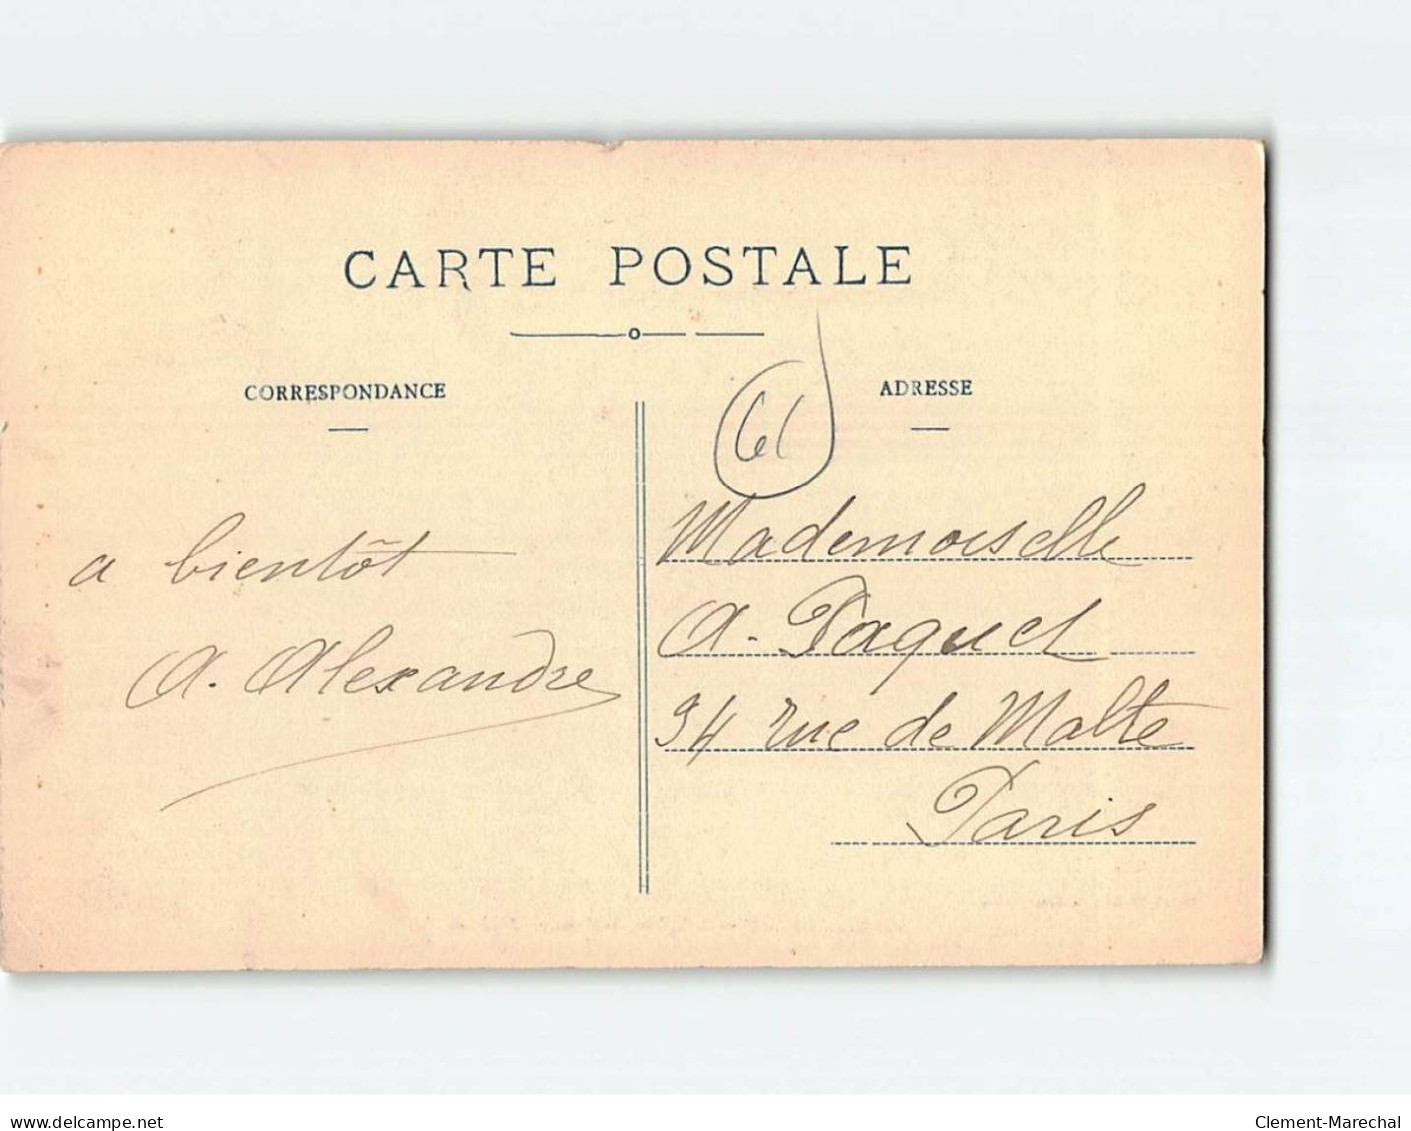 CARTE POSTALE
CORRESPONDANCE
ADRESSE
61
a bientôt
A. Alexandre
Mademoiselle
A. Paquet
94 rue de Malte
Paris
www.delcampe.net
Clement-Marechal